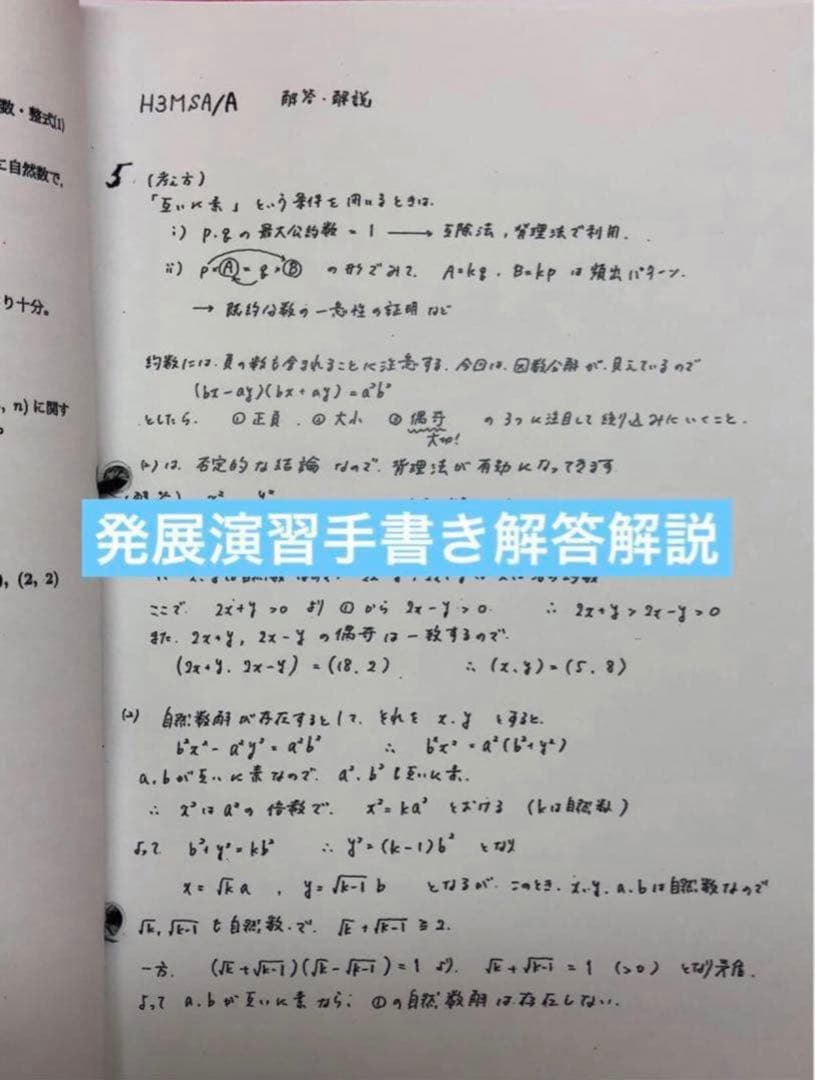 数・整式(1)
に自然数で,
り十分。
, n) に関す
), (2, 2)
H3MSA/A 解答・解説
5 (考え方)
「互いに素」という条件を用いるときは.
i) p.qの最大公約数=1 → 互除法,背理法で利用.
ii) p×Ⓐ=q×Ⓑ の形でみて. A=kq. B=kp は頻出パターン.
→ 既約分数の一意性の証明など
約数には.負の数も含まれることに注意する.今回は.因数分解が.見えているので
(bx-ay)(bx+ay)=a²b²
としたら. ①正負. ②大小 ③偶奇 の3つに注目して絞り込みにいくこと.
大切!
(2)は.否定的な結論なので.背理法が有効になってきます
発展演習手書き解答解説
ここで. 2x+y>0 より ①から 2x-y>0. ∴ 2x+y>2x-y>0
また. 2x+y, 2x-y の偶奇は一致するので.
(2x+y. 2x-y)=(18.2) ∴(x.y)=(5.8)
(2) 自然数解が存在するとして.それを x.y とすると.
b²x²-a²y²=a²b² ∴ b²x²=a²(b²+y²)
a.bが互いに素なので. a².b²も互いに素.
∴ x²はa²の倍数で. x²=ka² とおける (kは自然数)
よって b²+y²=kb² ∴ y²=(k-1)b² となり
x=√k a , y=√k-1 b となるが.このとき.x.y.a.bは自然数なので
√k,√k-1 も自然数.で. √k+√k-1≧2.
一方. (√k+√k-1)(√k-√k-1)=1 より. √k+√k-1=1 (>0) となり矛盾.
よって a.bが互いに素なら. ①の自然数解は存在しない.